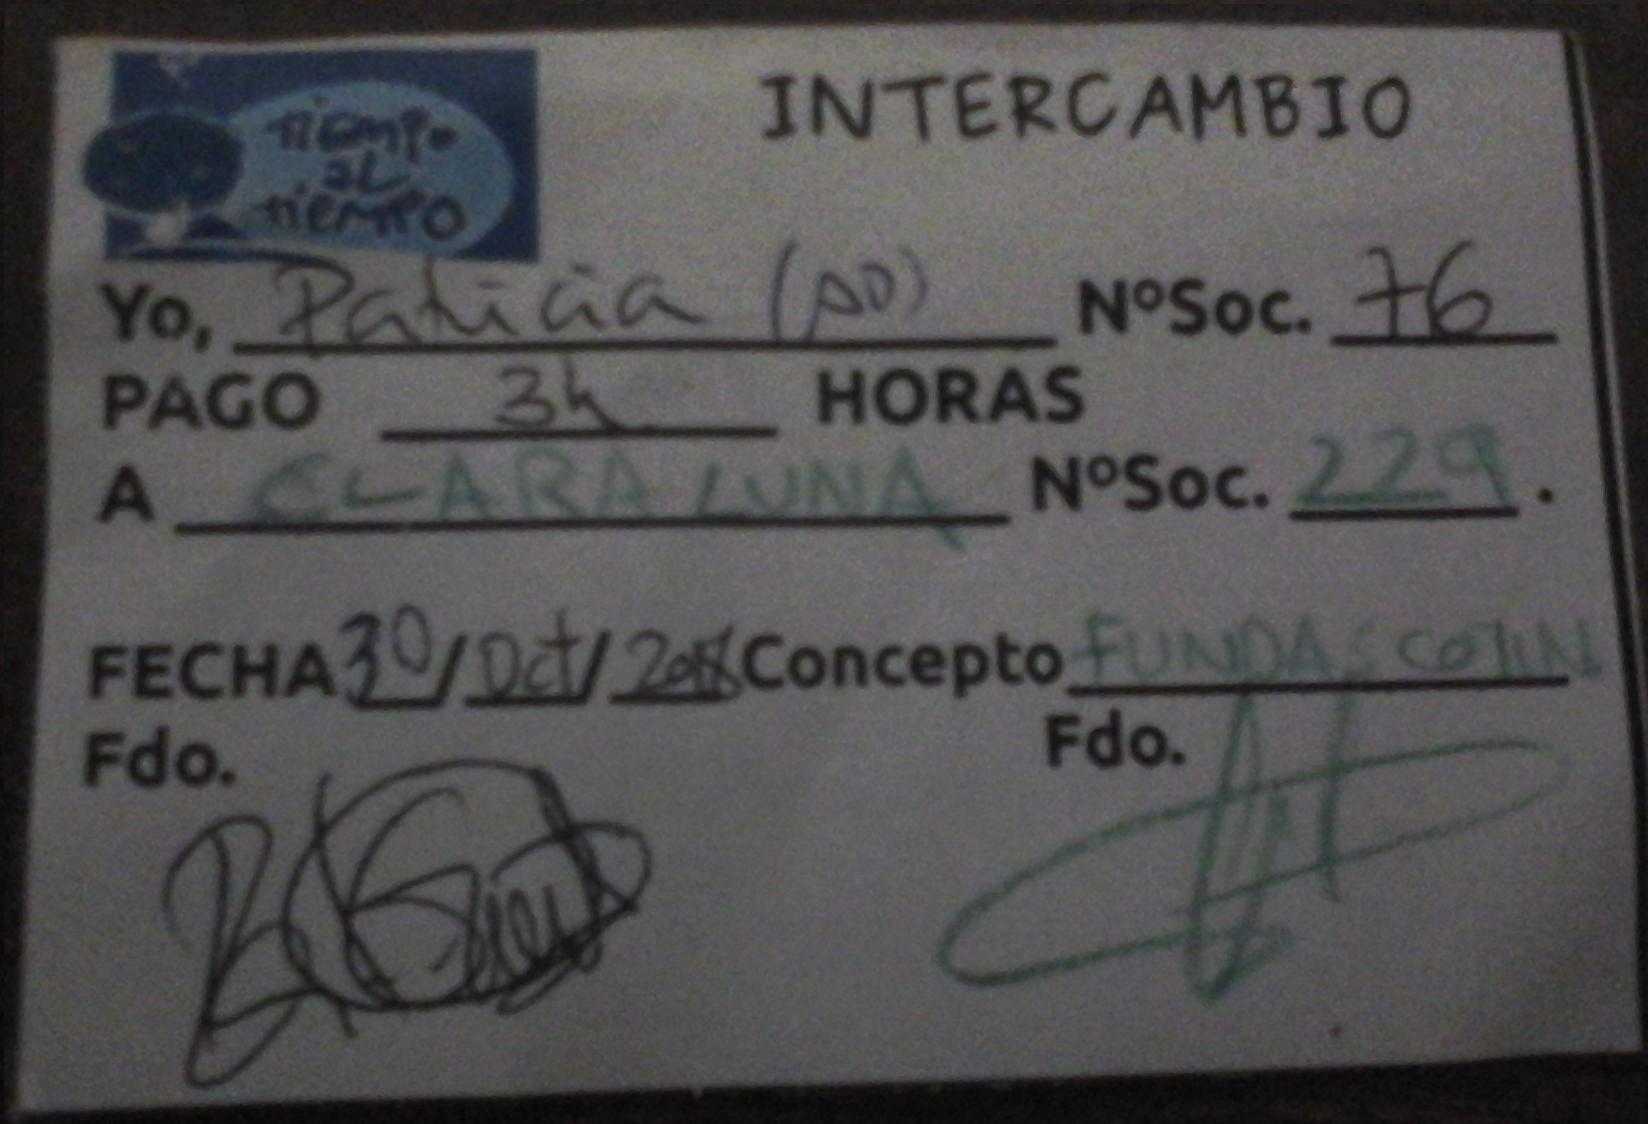 TIEMPO
AL
TIEMPO
INTERCAMBIO
Yo, Patricia (AD) NºSoc. 76
PAGO 3h HORAS
A CLARA LUNA NºSoc. 229.
FECHA 30/Oct/2018 Concepto FUNDAS COJIN
Fdo. Fdo.